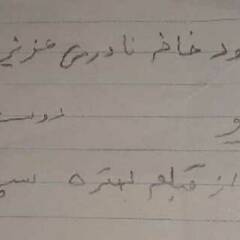 ود خانم نادری عزیز
و دوست
از قبلم بهتره سی